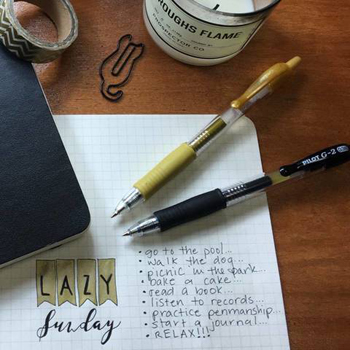 ROUGHS FLAME
PROSPECTOR CO.
PILOT G-2
LAZY
Sunday
• go to the pool...
• walk the dog...
• picnic in the park...
• bake a cake...
• read a book...
• listen to records...
• practice penmanship...
• start a journal...
• RELAX!!!